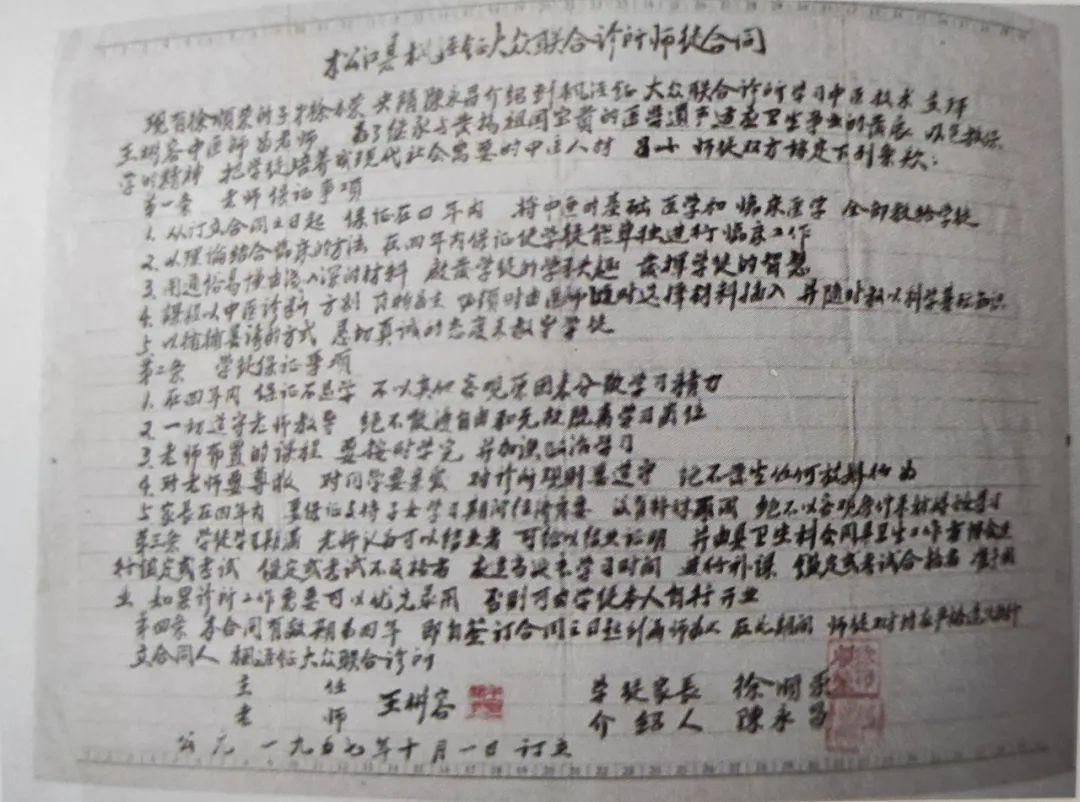 松江县枫泾镇大众联合诊所师徒合同
现有徐顺荣的子 徐 荣 央请陈永昌介绍到枫泾镇 大众联合诊所学习中医技术 并拜
王树容中医师为老师 为了继承与发扬祖国宝贵的医学遗产适应卫生事业的发展 以包教保
学的精神 把学徒培养成现代社会需要的中医人材 师徒双方协定下列条款:
第一条 老师保证事项
1. 从订立合同之日起 保证在四年内 将中医的基础医学和临床医学 全部教给学徒
2. 以理论结合临床的方法 在四年内保证使学徒能单独进行临床工作
3. 用通俗易懂由浅入深的材料 启发学徒的学习兴趣 发挥学徒的智慧
4. 课程以中医诊断 方剂 为主 必须时由医师随时选择材料插入 并随时教以科学基础知识
5. 以循循善诱的方式 恳切真诚的态度来教导学徒
第二条 学徒保证事项
1. 在四年内 保证不退学 不以其他客观原因来分散学习精力
2. 一切遵守老师教导 绝不散漫自由和无故脱离学习岗位
3. 老师布置的课程 要按时学完 并加强政治学习
4. 对老师要尊敬 对同学要亲爱 对诊所规则要遵守 绝不发生任何放肆行为
5. 家长在四年内 要保证支持子女学习期间经济需要 绝不以客观条件来妨碍学习
第三条 学徒学习期满 老师认为可以结业者 可给以结业证明 并由县卫生科会同县卫生工作者协会进
行鉴定或考试 鉴定或考试不及格者 学习时间 进行补课 鉴定或考试合格者 准予开
业 如果诊所工作需要可以优先录用 否则可由学徒本人自行开业
第四条 本合同有效期为四年 即自签订合同之日起到 在此期间 师徒双方均应严格遵守执行
立合同人 枫泾镇大众联合诊所
主任
老师 王树容
学徒家长 徐顺荣
介绍人 陈永昌
公元一九五七年十月一日订立